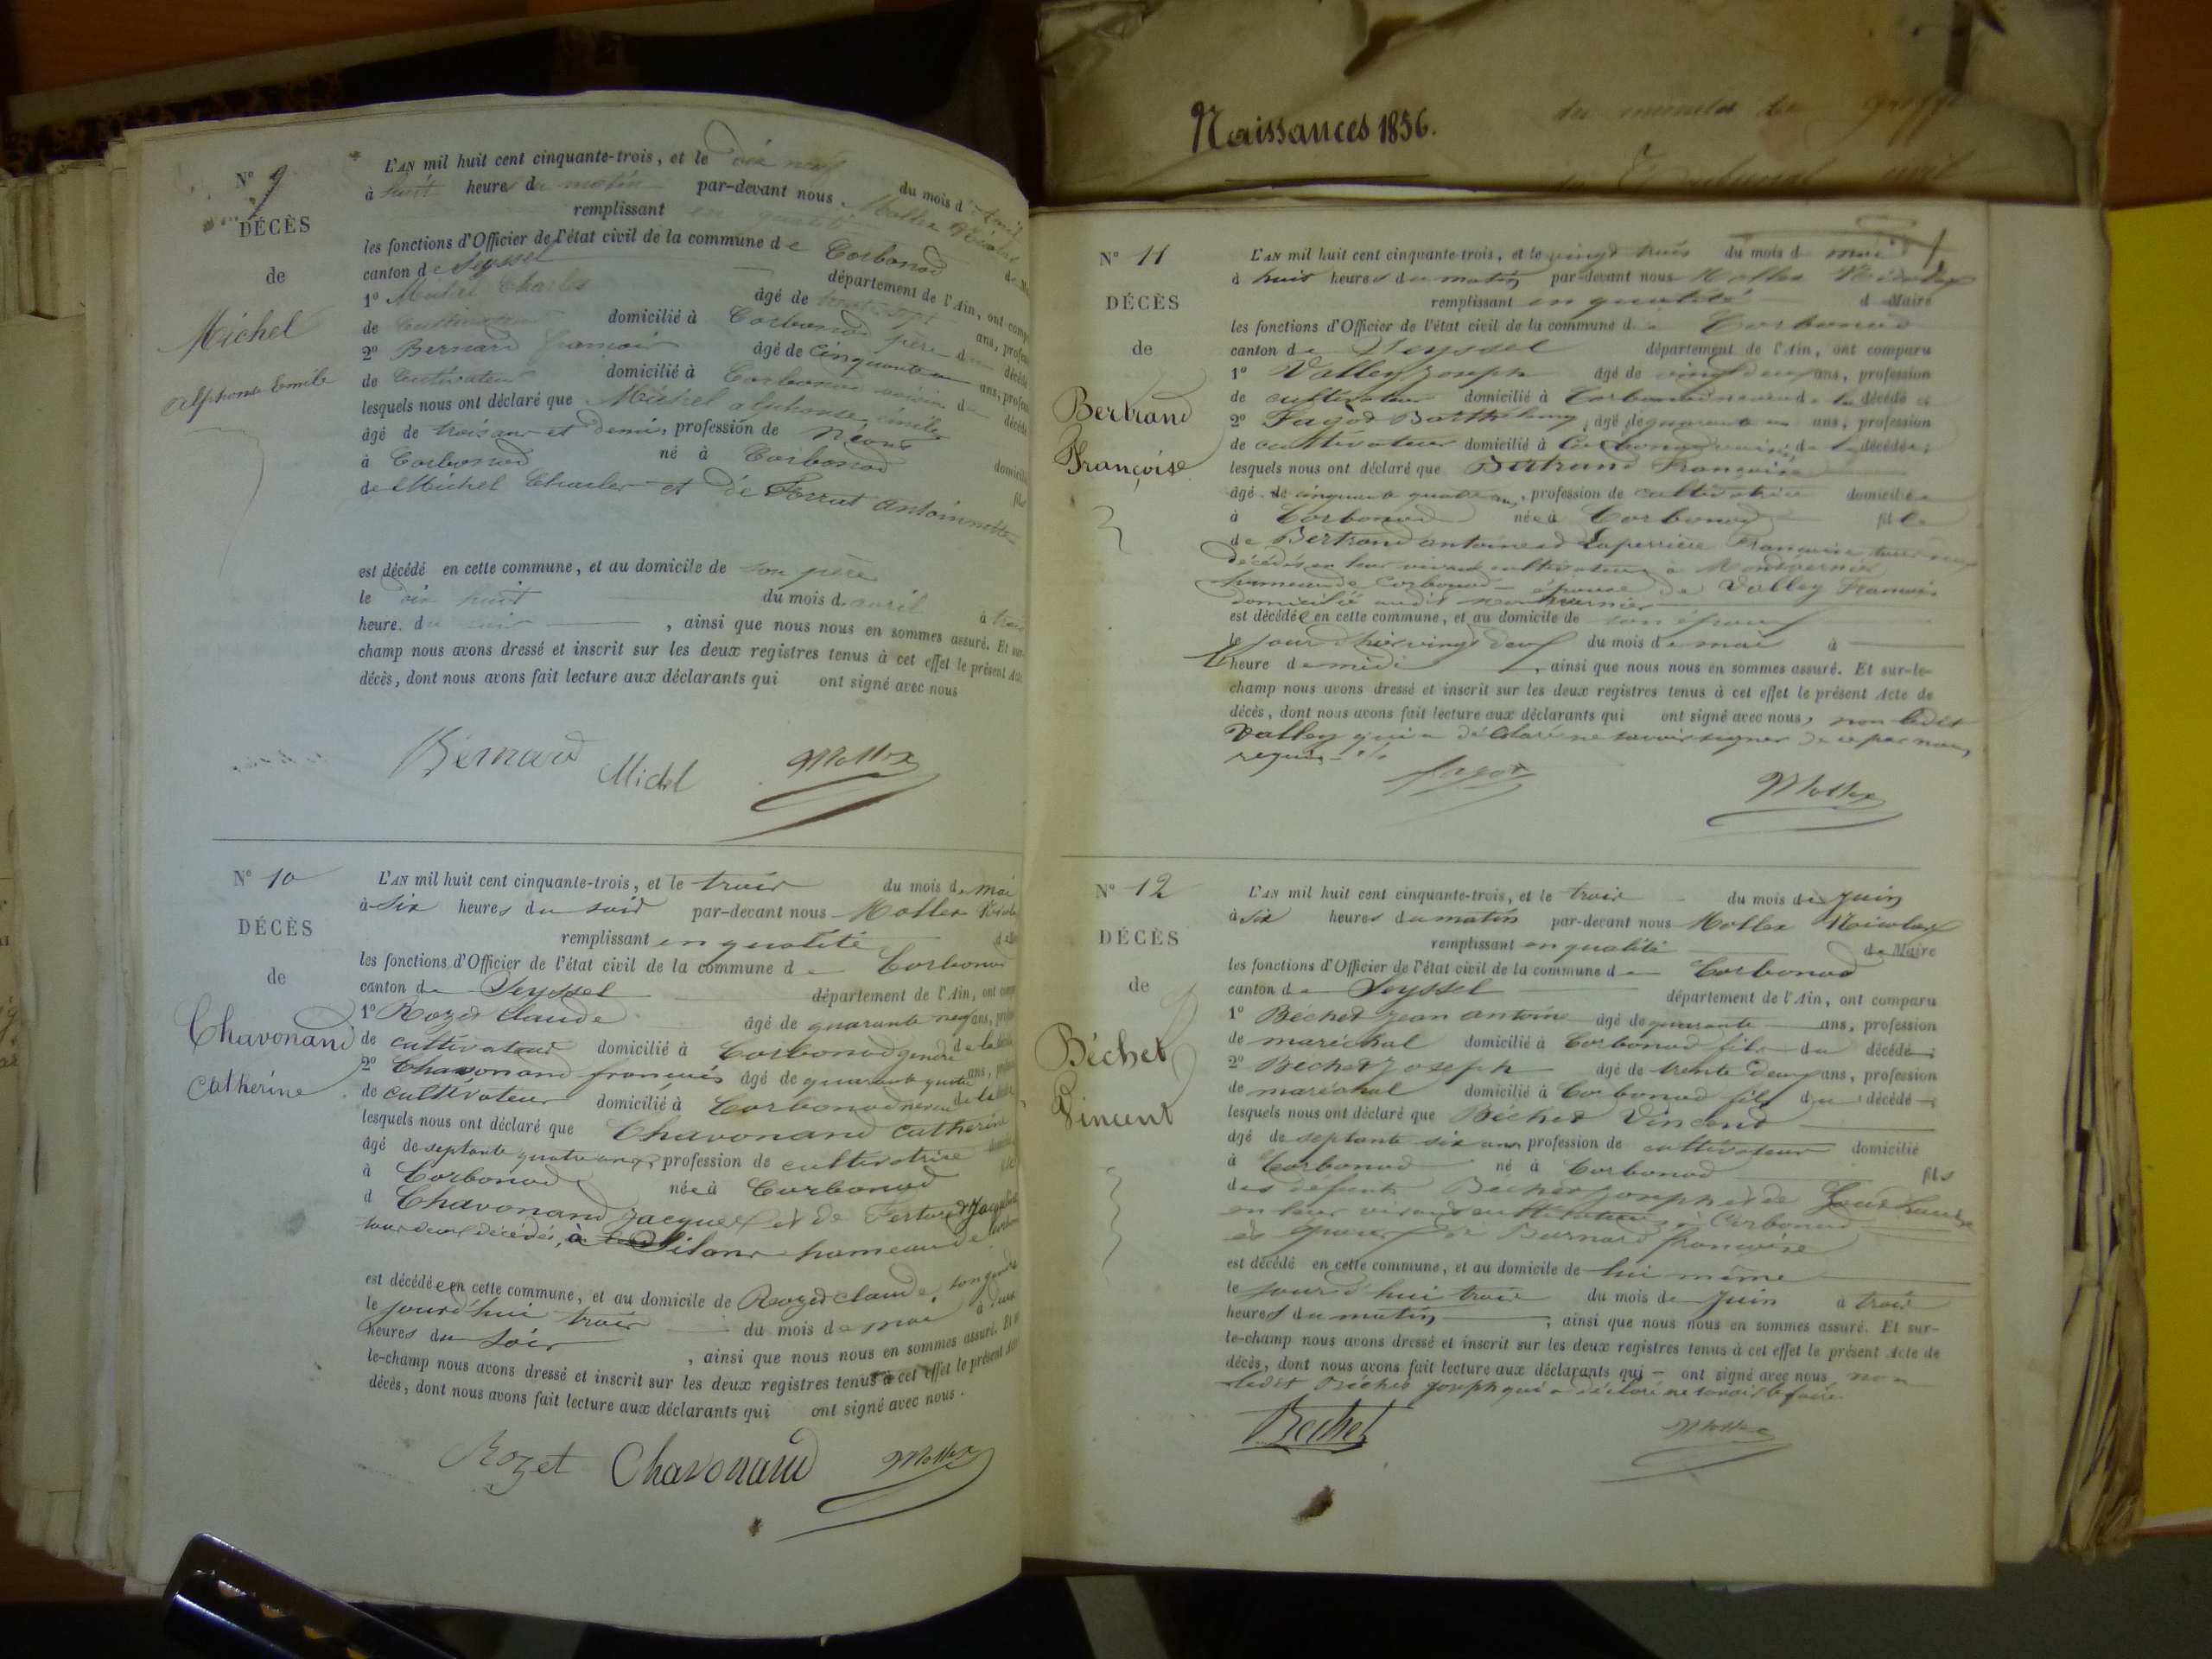 Naissances 1856.
N° 9
DÉCÈS
de
Michel
Alphonse Emile
L'AN mil huit cent cinquante-trois, et le dix neuf du mois d'avril
à huit heures du matin par-devant nous Mollex Nicolas
remplissant en qualité de
les fonctions d'Officier de l'état civil de la commune de Corbonod
canton de Seyssel département de l'Ain, ont
1° Michel Charles âgé de trente sept ans,
de cultivateur domicilié à Corbonod père du décédé
2° Bernard françois âgé de cinquante un ans,
de cultivateur domicilié à Corbonod voisin du décédé
lesquels nous ont déclaré que Michel alphonse émile
âgé de trois ans et demi, profession de Néant
à Corbonod né à Corbonod fils
de Michel Charles et de Ferrut antoinette
est décédé en cette commune, et au domicile de son père
le dix huit du mois d avril à
heure. du soir , ainsi que nous nous en sommes assuré. Et sur
champ nous avons dressé et inscrit sur les deux registres tenus à cet effet le présent Acte
décès, dont nous avons fait lecture aux déclarants qui ont signé avec nous
Bernard Michel Mollex
N° 10
DÉCÈS
de
Chavonand
Catherine
L'AN mil huit cent cinquante-trois, et le trois du mois de mai
à Six heures du soir par-devant nous Mollex
remplissant en qualité
les fonctions d'Officier de l'état civil de la commune de Corbonod
canton de Seyssel département de l'Ain, ont
1° Rozet Claude âgé de quarante neuf ans,
de cultivateur domicilié à Corbonod gendre de la
2° Chavonand françois âgé de quarante quatre ans,
de cultivateur domicilié à Corbonod neveu de la
lesquels nous ont déclaré que Chavonand Catherine
âgé de septante quatre ans, profession de cultivatrice
à Corbonod née à Corbonod
d Chavonand Jacques et de
tous deux décédés, à Silans hameau de
est décédée en cette commune, et au domicile de Rozet Claude, son gendre
le jourd'hui trois du mois de mai à deux
heures du soir , ainsi que nous nous en sommes assuré. Et
le-champ nous avons dressé et inscrit sur les deux registres tenus à cet effet le présent
décès, dont nous avons fait lecture aux déclarants qui ont signé avec nous.
Rozet Chavonand Mollex
N° 11
DÉCÈS
de
Bertrand
Françoise
L'AN mil huit cent cinquante-trois, et le vingt trois du mois d mai
à huit heures du matin par-devant nous Mollex Nicolas
remplissant en qualité de Maire
les fonctions d'Officier de l'état civil de la commune de Corbonod
canton de Seyssel département de l'Ain, ont comparu
1° Valley Joseph âgé de vingt deux ans, profession
de cultivateur domicilié à Corbonod neveu de la décédée
2° Fagot Barthélemy, âgé de quarante un ans, profession
de cultivateur domicilié à Corbonod voisin de la décédée;
lesquels nous ont déclaré que Bertrand Françoise
âgé de cinquante quatre ans, profession de cultivatrice domiciliée
à Corbonod née à Corbonod fille
de Bertrand antoine et Laperrière Françoise tous deux
décédés en leur vivant cultivateurs à Montvernier
hameau de Corbonod épouse de Valley François
domicilié audit Montvernier
est décédée en cette commune, et au domicile de son époux
le jour d'hier vingt deux du mois de mai à
heure de midi , ainsi que nous nous en sommes assuré. Et sur-le-
champ nous avons dressé et inscrit sur les deux registres tenus à cet effet le présent Acte de
décès, dont nous avons fait lecture aux déclarants qui ont signé avec nous, non ledit
Valley qui a déclaré ne savoir signer de ce par nous
requis
fagot Mollex
N° 12
DÉCÈS
de
Béchet
Vincent
L'AN mil huit cent cinquante-trois, et le trois du mois de Juin
à six heures du matin par-devant nous Mollex Nicolas
remplissant en qualité de Maire
les fonctions d'Officier de l'état civil de la commune de Corbonod
canton de Seyssel département de l'Ain, ont comparu
1° Béchet Jean Antoine âgé de quarante ans, profession
de maréchal domicilié à Corbonod fils du décédé;
2° Béchet Joseph âgé de trente deux ans, profession
de maréchal domicilié à Corbonod fils du décédé
lesquels nous ont déclaré que Béchet Vincent
âgé de septante six ans, profession de cultivateur domicilié
à Corbonod né à Corbonod fils
des défunts Béchet Joseph et de
en leur vivant cultivateurs à Corbonod
et époux de Bernard françoise
est décédé en cette commune, et au domicile de lui même
le jourd'hui trois du mois de Juin à trois
heures du matin , ainsi que nous nous en sommes assuré. Et sur-
le-champ nous avons dressé et inscrit sur les deux registres tenus à cet effet le présent Acte de
décès, dont nous avons fait lecture aux déclarants qui ont signé avec nous non
ledit Béchet Joseph qui a déclaré ne savoir le faire
Bechet Mollex